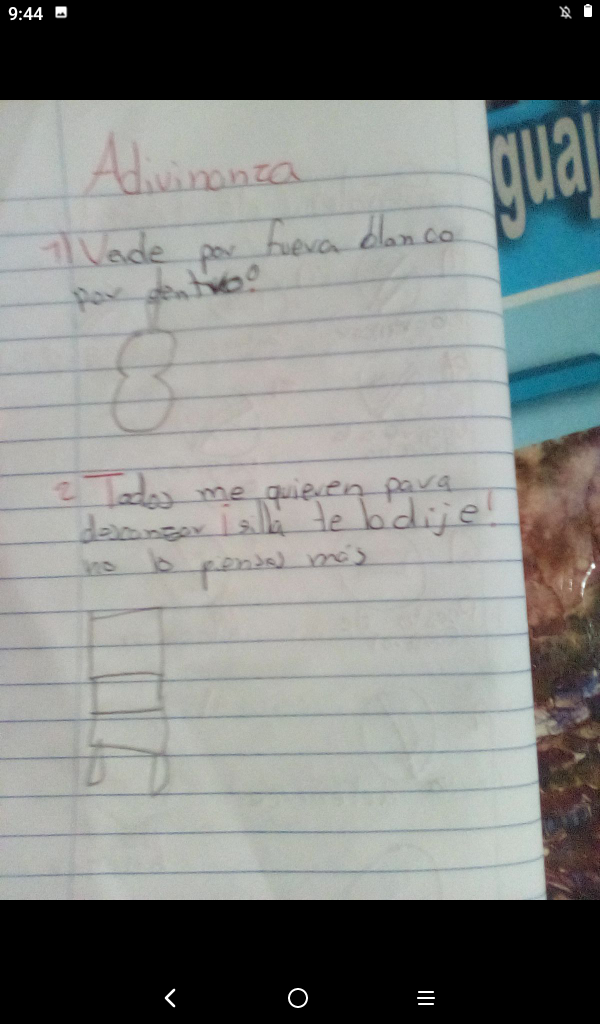 9:44
Adivinanza
guaj
1) Verde por fuera blanco
por dentro?
2 Todos me quieren para
descanzar ¡silla te lo dije!
no lo pienses más